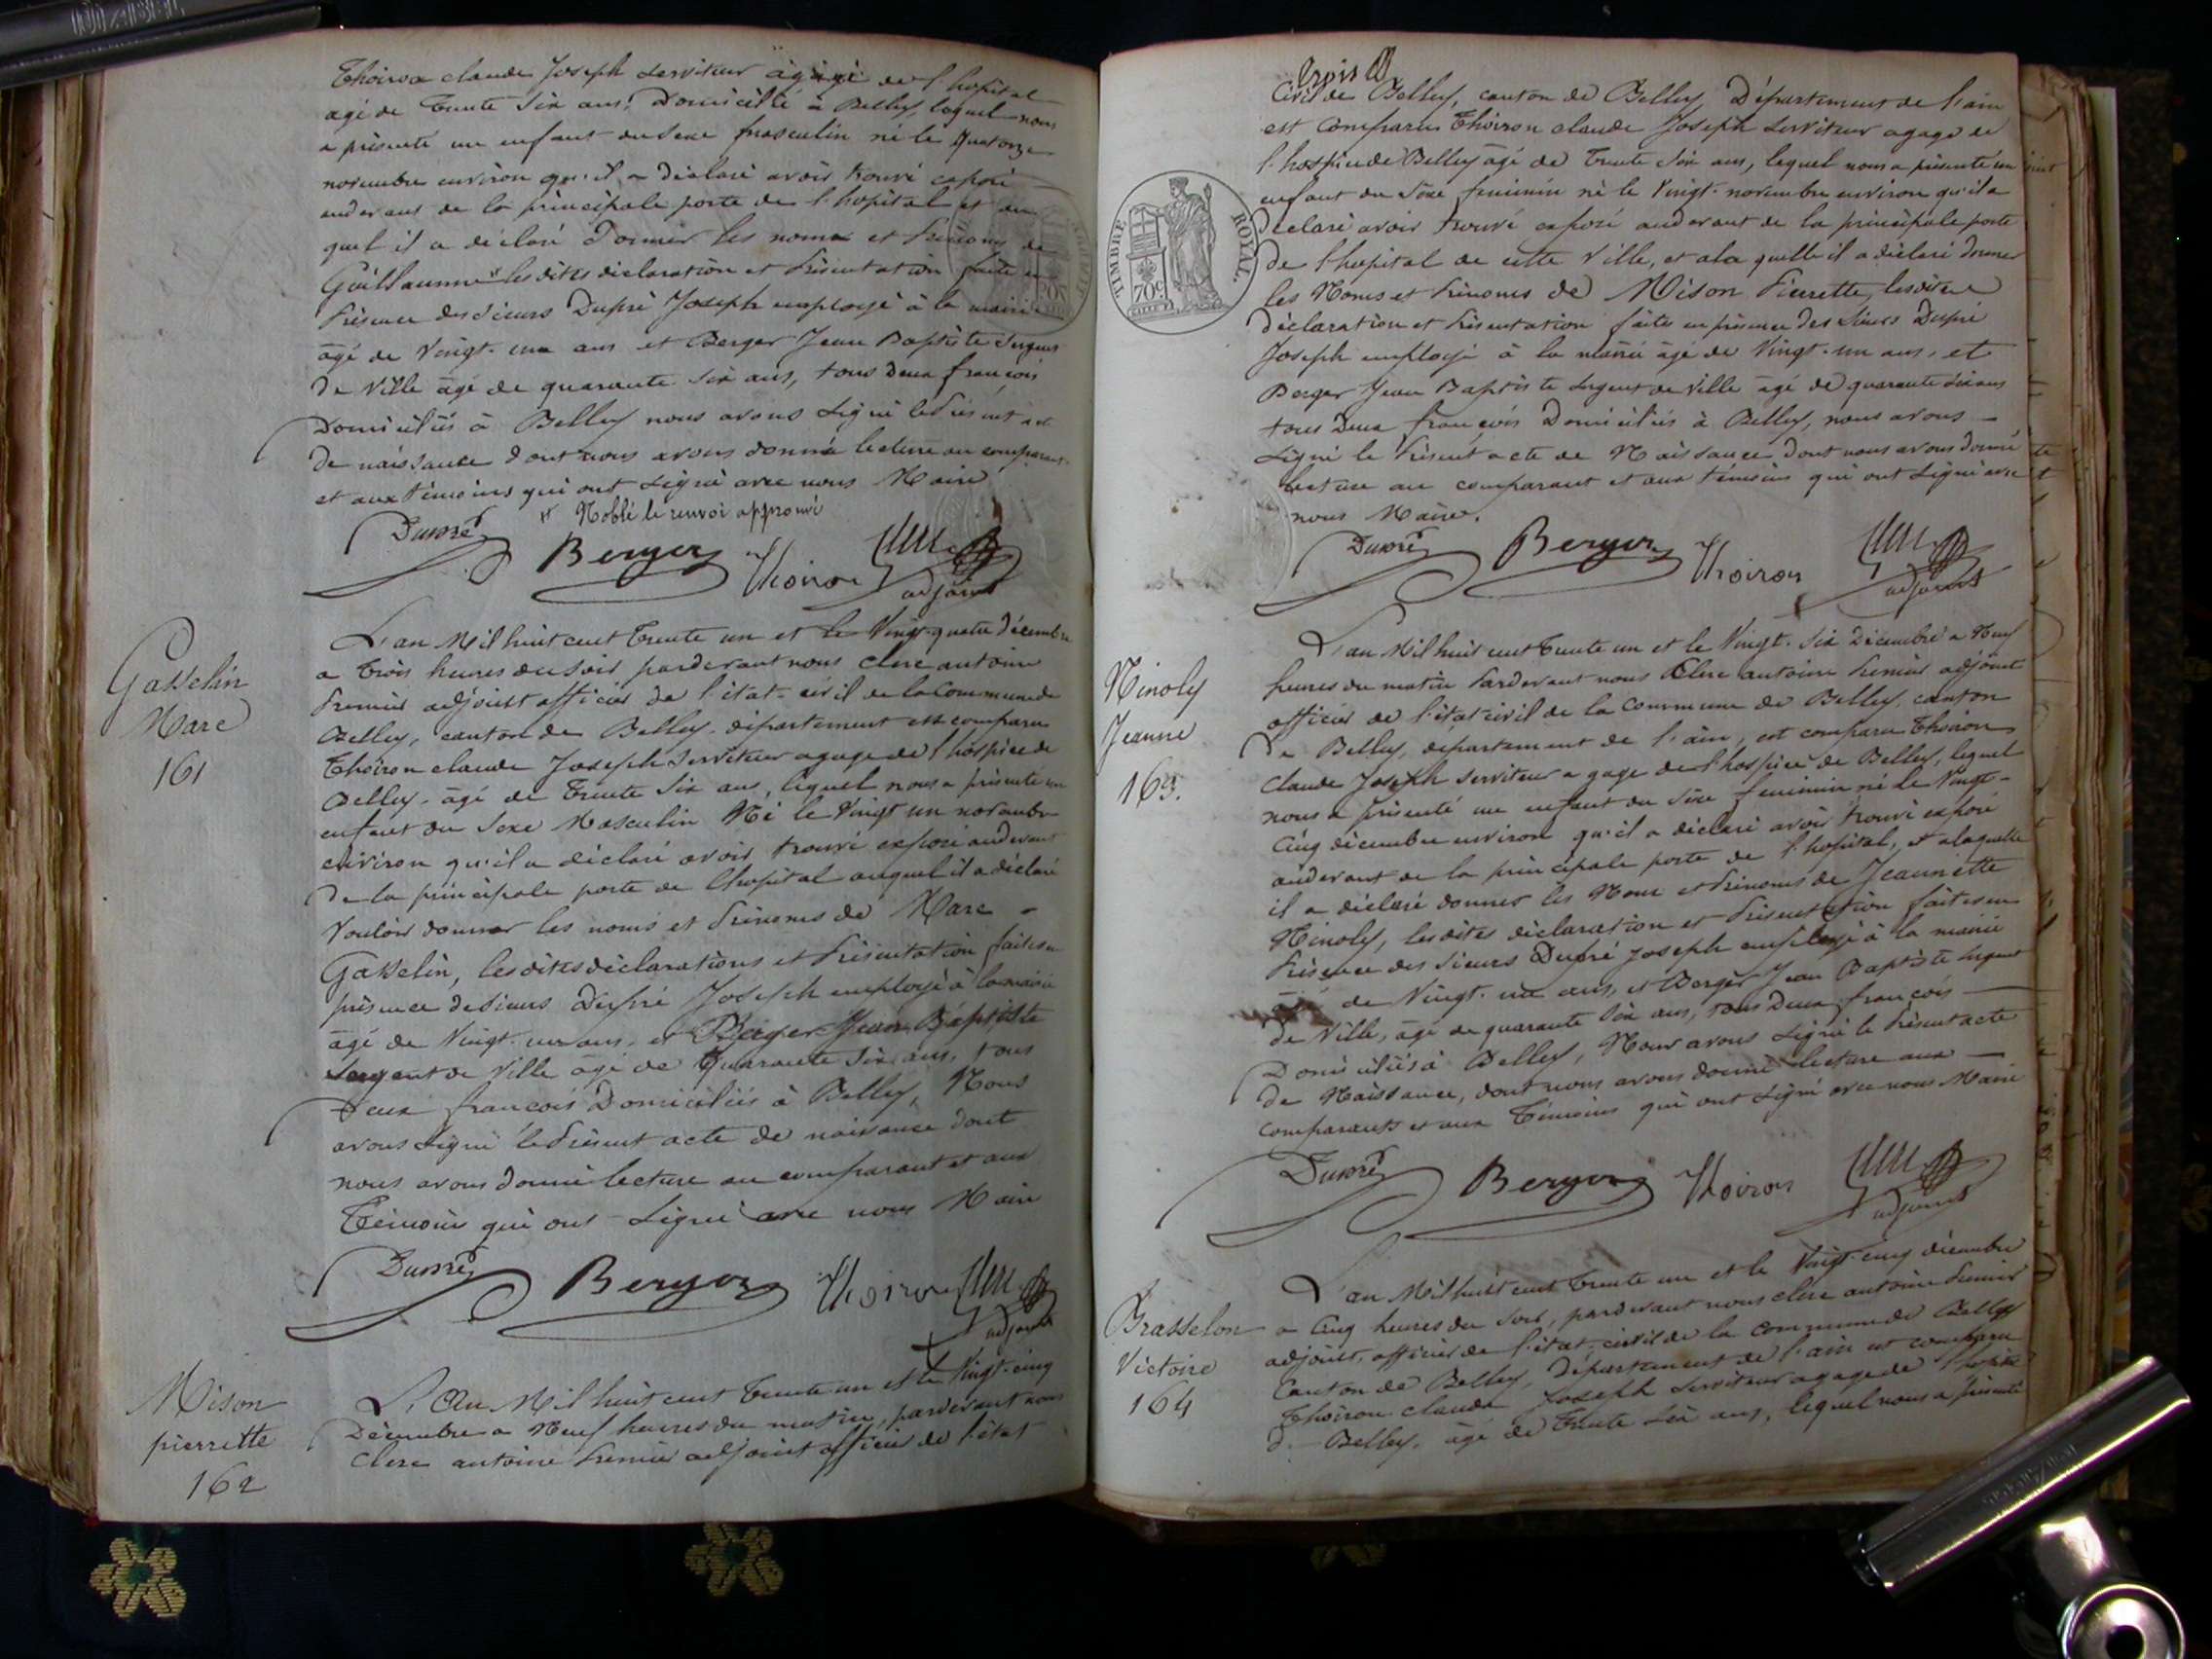 Thoiron claude Joseph serviteur à gage de l'hopital
agé de Trente six ans, Domicillié à Belley, lequel nous
a présenté un enfant du sexe masculin né le quatorze
novembre environ qu'il a déclaré avoir trouvé exposé
audevant de la principale porte de l'hopital et au
quel il a déclaré Donner les noms et Prénoms de
Guillaume * les dites déclaration et Présentation faite en
Présence des sieurs Dupré Joseph employé à la mairie
âgé de Vingt-un ans et Berger Jean Baptiste Sergent
de Ville âgé de quarante six ans, tous deux françois
Domiciliés à Belley nous avons signé le Présent acte
de naissance dont nous avons donné lecture au comparant
et aux témoins qui ont signé avec nous Maire
* Noblé le renvoi approuvé
Dupré Berger Thoiron Clerc
adjoint
Gasselin
Marc
161
L'an Mil huit cent Trente un et le Vingt-quatre décembre
a Trois heures du soir, pardevant nous Clerc antoine
Premier adjoint officier de l'état-civil de la Commune de
Belley, canton de Belley, département est comparu
Thoiron claude Joseph serviteur a gage de l'hospice de
Belley, âgé de Trente six ans, lequel nous a présenté un
enfant du sexe Masculin Né le Vingt un novembre
environ qu'il a déclaré avoir trouvé exposé audevant
de la principale porte de l'hopital auquel il a déclaré
Vouloir donner les noms et Prénoms de Marc -
Gasselin, les dites déclarations et Présentation faites en
présence de Sieurs Dupré Joseph employé à la mairie
âgé de Vingt-un ans, et Berger Jean Baptiste
Sergent de Ville âgé de Quarante Six ans, tous
deux françois Domiciliés à Belley, Nous
avons signé le Présent acte de naissance dont
nous avons donné lecture au comparant et aux
Témoins qui ont signé avec nous Maire
Dupré Berger Thoiron Clerc
adjoint
Mison
pierrette
162
L'An Mil huit cent Trente un et le Vingt-cinq
Décembre a Neuf heures du matin, pardevant nous
Clerc antoine Premier adjoint officier de l'état
trois
Civil de Belley, canton de Belley, Département de l'ain
est Comparu Thoiron claude Joseph serviteur a gage de
l'hospice de Belley âgé de Trente six ans, lequel nous a présenté un
enfant du sexe feminin né le Vingt-novembre environ qu'il a
Déclaré avoir trouvé exposé audevant de la principale porte
de l'hopital de cette Ville, et a la quelle il a déclaré donner
les Noms et Prénoms de Mison Pierrette, les dites
déclaration et Présentation faites en présence des Sieurs Dupré
Joseph employé à la mairie âgé de Vingt-un ans, et
Berger Jean Baptiste Sergent de Ville âgé de quarante six ans
tous Deux françois Domiciliés à Belley, nous avons -
signé le Présent acte de Naissance Dont nous avons donné
lecture au comparant et aux témoins qui ont signé avec
nous Maire.
TIMBRE ROYAL.
70c
Dupré Berger Thoiron Clerc
adjoint
Ninoly
Jeanne
163.
L'an Mil huit cent Trente un et le Vingt-six décembre a Neuf
heures du matin Pardevant nous Clerc antoine Premier adjoint
officier de l'état civil de la Commune de Belley, canton
de Belley, département de l'ain, est comparu Thoiron
Claude Joseph serviteur a gage de l'hospice de Belley, lequel
nous a présenté un enfant du sexe feminin né le Vingt-
Cinq décembre environ qu'il a déclaré avoir trouvé exposé
audevant de la principale porte de l'hopital, et a laquelle
il a déclaré donner les Nom et Prénoms de Jeannette
Ninoly, les dites déclaration et Présentation faites en
Présence des Sieurs Dupré Joseph employé à la mairie
âgé de Vingt-un ans, et Berger Jean Baptiste Sergent
de Ville, âgé de quarante six ans, tous Deux françois -
Domiciliés à Belley, Nous avons signé le Présent acte
de Naissance, dont nous avons donné lecture aux -
comparants et aux Témoins qui ont signé avec nous Maire
Dupré Berger Thoiron Clerc
adjoint
Brasselon
Victoire
164
L'an Mil huit cent Trente un et le Vingt-cinq décembre
a Cinq heures du soir, pardevant nous Clerc antoine Premier
adjoint, officier de l'état-civil de la Commune de Belley
Canton de Belley, Département de l'ain est comparu
Thoiron claude Joseph serviteur a gage de l'hospice
de Belley, âgé de Trente six ans, lequel nous a présenté